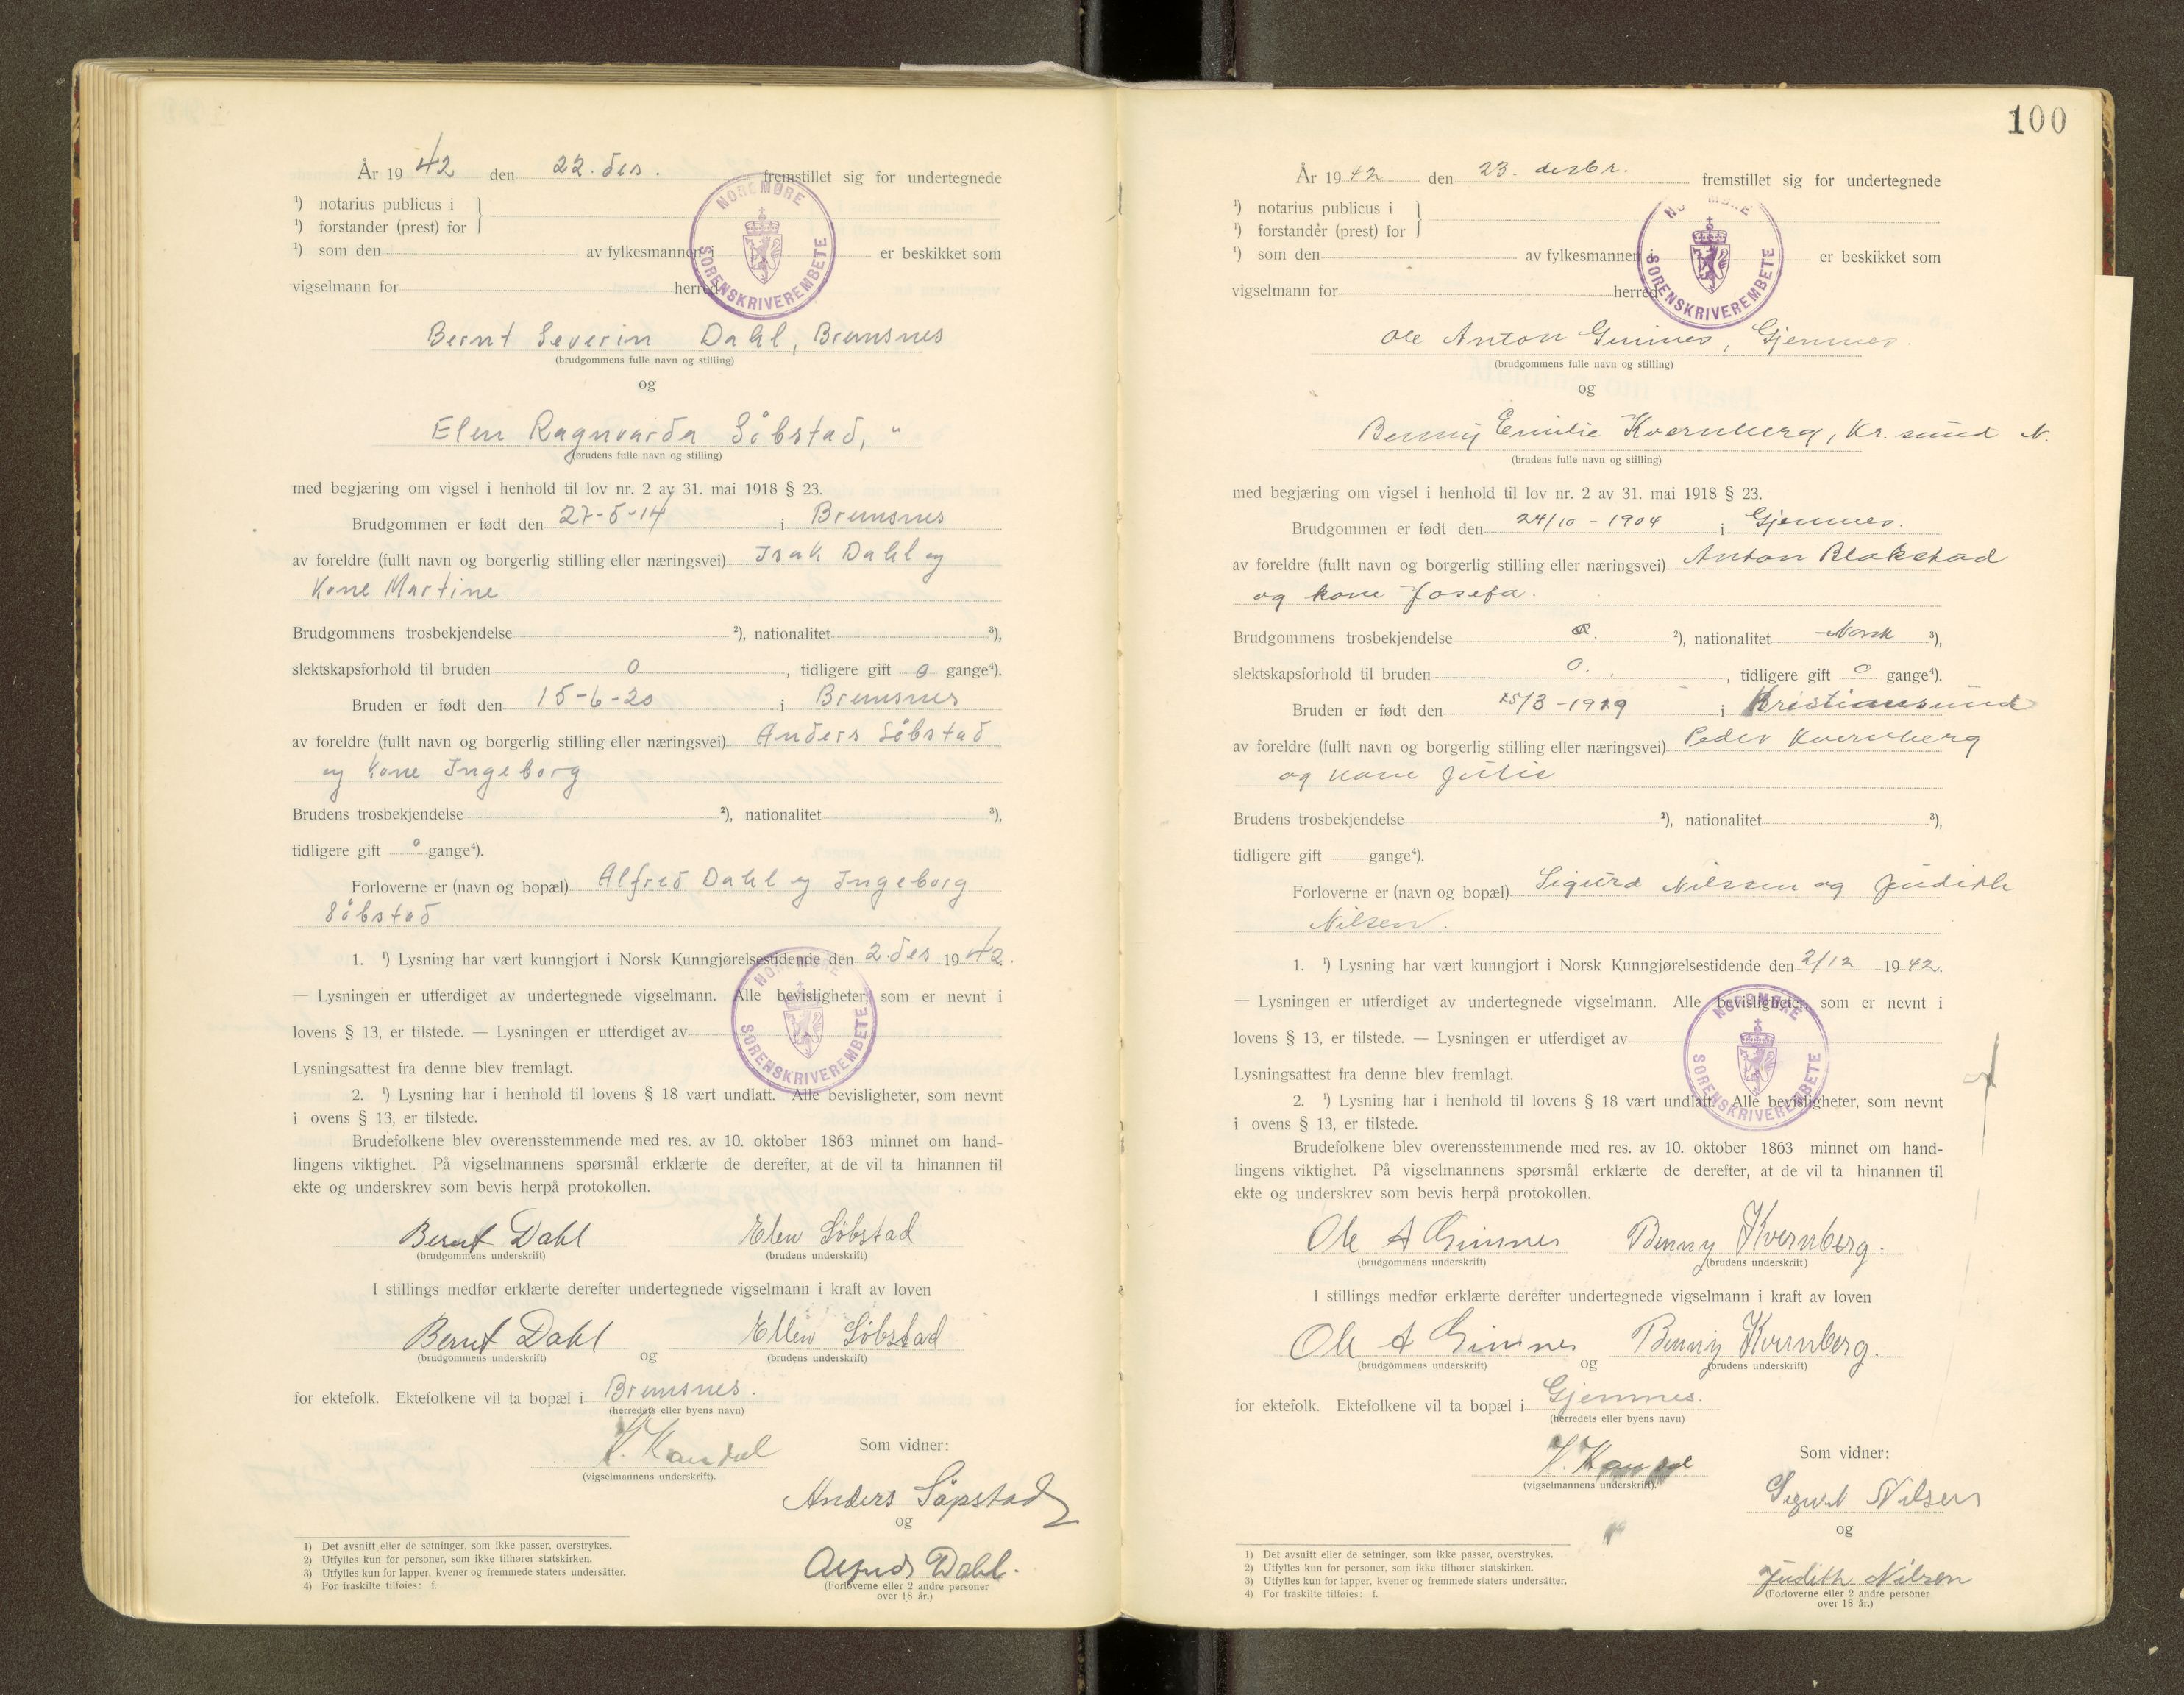 År 19 42 den 22. des. fremstillet sig for undertegnede
¹) notarius publicus i
¹) forstander (prest) for
¹) som den av fylkesmannen i er beskikket som
vigselmann for herred
NORDMØRE SORENSKRIVEREMBETE
Bernt Severin Dahl, Bremsnes
(brudgommens fulle navn og stilling)
og
Elen Ragnvarda Sőbstad, "
(brudens fulle navn og stilling)
med begjæring om vigsel i henhold til lov nr. 2 av 31. mai 1918 § 23.
Brudgommen er født den 27-5-14 i Bremsnes
av foreldre (fullt navn og borgerlig stilling eller næringsvei) Isak Dahl og
Kone Martine
Brudgommens trosbekjendelse ²), nationalitet ³),
slektskapsforhold til bruden 0, tidligere gift 0 gange⁴).
Bruden er født den 15-6-20 i Bremsnes
av foreldre (fullt navn og borgerlig stilling eller næringsvei) Anders Söbstad
og Kone Ingeborg
Brudens trosbekjendelse ²), nationalitet ³),
tidligere gift 0 gange⁴).
Forloverne er (navn og bopæl) Alfred Dahl og Ingeborg
Söbstad
1. ¹) Lysning har vært kunngjort i Norsk Kunngjørelsestidende den 2. des 19 42.
— Lysningen er utferdiget av undertegnede vigselmann. Alle bevisligheter, som er nevnt i
lovens § 13, er tilstede. — Lysningen er utferdiget av
NORDMØRE SORENSKRIVEREMBETE
Lysningsattest fra denne blev fremlagt.
2. ¹) Lysning har i henhold til lovens § 18 vært undlatt. Alle bevisligheter, som nevnt
i ovens § 13, er tilstede.
Brudefolkene blev overensstemmende med res. av 10. oktober 1863 minnet om hand-
lingens viktighet. På vigselmannens spørsmål erklærte de derefter, at de vil ta hinannen til
ekte og underskrev som bevis herpå protokollen.
Bernt Dahl Elen Söbstad
(brudgommens underskrift) (brudens underskrift)
I stillings medfør erklærte derefter undertegnede vigselmann i kraft av loven
Bernt Dahl og Ellen Söbstad
(brudgommens underskrift) (brudens underskrift)
for ektefolk. Ektefolkene vil ta bopæl i Bremsnes.
(herredets eller byens navn)
K. Kandal
(vigselmannens underskrift).
Som vidner:
Anders Söpstad
og
Alfred Dahl.
(Forloverne eller 2 andre personer
over 18 år.)
1) Det avsnitt eller de setninger, som ikke passer, overstrykes.
2) Utfylles kun for personer, som ikke tilhører statskirken.
3) Utfylles kun for lapper, kvener og fremmede staters undersåtter.
4) For fraskilte tilføies: f.
100
År 19 42 den 23. desbr. fremstillet sig for undertegnede
¹) notarius publicus i
¹) forstander (prest) for
¹) som den av fylkesmannen i er beskikket som
vigselmann for herred
NORDMØRE SORENSKRIVEREMBETE
Ole Anton Gimnes, Gjemnes.
(brudgommens fulle navn og stilling)
og
Benny Emilie Kvernberg, Kr. sund N.
(brudens fulle navn og stilling)
med begjæring om vigsel i henhold til lov nr. 2 av 31. mai 1918 § 23.
Brudgommen er født den 24/10 - 1904 i Gjemnes.
av foreldre (fullt navn og borgerlig stilling eller næringsvei) Anton Blakstad
og kone Josefa.
Brudgommens trosbekjendelse ²), nationalitet Norsk ³),
slektskapsforhold til bruden 0., tidligere gift 0 gange⁴).
Bruden er født den 15/3 - 1919 i Kristiansund
av foreldre (fullt navn og borgerlig stilling eller næringsvei) Peder Kvernberg
og kone Julie
Brudens trosbekjendelse ²), nationalitet ³),
tidligere gift gange⁴).
Forloverne er (navn og bopæl) Sigurd Nilssen og Judith
Nilsen.
1. ¹) Lysning har vært kunngjort i Norsk Kunngjørelsestidende den 2/12 19 42.
— Lysningen er utferdiget av undertegnede vigselmann. Alle bevisligheter, som er nevnt i
lovens § 13, er tilstede. — Lysningen er utferdiget av
NORDMØRE SORENSKRIVEREMBETE
Lysningsattest fra denne blev fremlagt.
2. ¹) Lysning har i henhold til lovens § 18 vært undlatt. Alle bevisligheter, som nevnt
i ovens § 13, er tilstede.
Brudefolkene blev overensstemmende med res. av 10. oktober 1863 minnet om hand-
lingens viktighet. På vigselmannens spørsmål erklærte de derefter, at de vil ta hinannen til
ekte og underskrev som bevis herpå protokollen.
Ole A Gimnes Benny Kvernberg.
(brudgommens underskrift) (brudens underskrift)
I stillings medfør erklærte derefter undertegnede vigselmann i kraft av loven
Ole A Gimnes og Benny Kvernberg.
(brudgommens underskrift) (brudens underskrift)
for ektefolk. Ektefolkene vil ta bopæl i Gjemnes.
(herredets eller byens navn)
K. Kandal
(vigselmannens underskrift).
Som vidner:
Sigurd Nilsen
og
Judith Nilsen
(Forloverne eller 2 andre personer
over 18 år.)
1) Det avsnitt eller de setninger, som ikke passer, overstrykes.
2) Utfylles kun for personer, som ikke tilhører statskirken.
3) Utfylles kun for lapper, kvener og fremmede staters undersåtter.
4) For fraskilte tilføies: f.